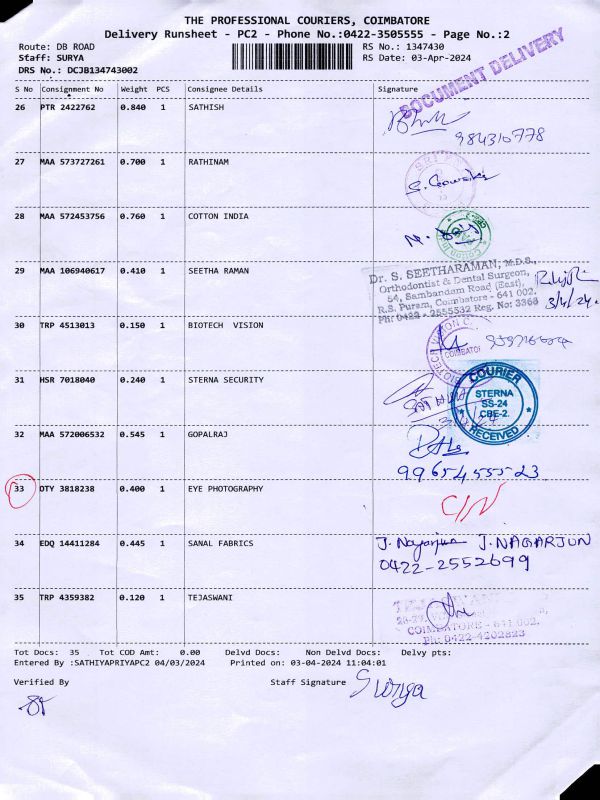 THE PROFESSIONAL COURIERS, COIMBATORE
Delivery Runsheet - PC2 - Phone No.:0422-3505555 - Page No.:2
Route: DB ROAD RS No.: 1347430
Staff: SURYA RS Date: 03-Apr-2024
DRS No.: DCJB134743002
DOCUMENT DELIVERY
S No Consignment No Weight PCS Consignee Details Signature
26 PTR 2422762 0.840 1 SATHISH
27 MAA 573727261 0.700 1 RATHINAM
28 MAA 572453756 0.760 1 COTTON INDIA
29 MAA 106940617 0.410 1 SEETHA RAMAN
Dr. S. SEETHARAMAN, M.D.S.,
Orthodontist & Dental Surgeon,
54, Sambandam Road (East),
R.S. Puram, Coimbatore - 641 002.
Ph: 0422 - 2555532 Reg. No: 3368
3/4/24.
30 TRP 4513013 0.150 1 BIOTECH VISION
31 HSR 7018040 0.240 1 STERNA SECURITY
COURIER
STERNA
SS-24
CBE-2.
RECEIVED
32 MAA 572006532 0.545 1 GOPALRAJ
33 DTY 3818238 0.400 1 EYE PHOTOGRAPHY
C/N
34 EDQ 14411284 0.445 1 SANAL FABRICS
J. Nagarjun J. NAGARJUN
0422-2552699
35 TRP 4359382 0.120 1 TEJASWANI
COIMBATORE - 641 002.
Ph: 0422-4202823
Tot Docs: 35 Tot COD Amt: 0.00 Delvd Docs: Non Delvd Docs: Delvy pts:
Entered By :SATHIYAPRIYAPC2 04/03/2024 Printed on: 03-04-2024 11:04:01
Verified By Staff Signature Surya